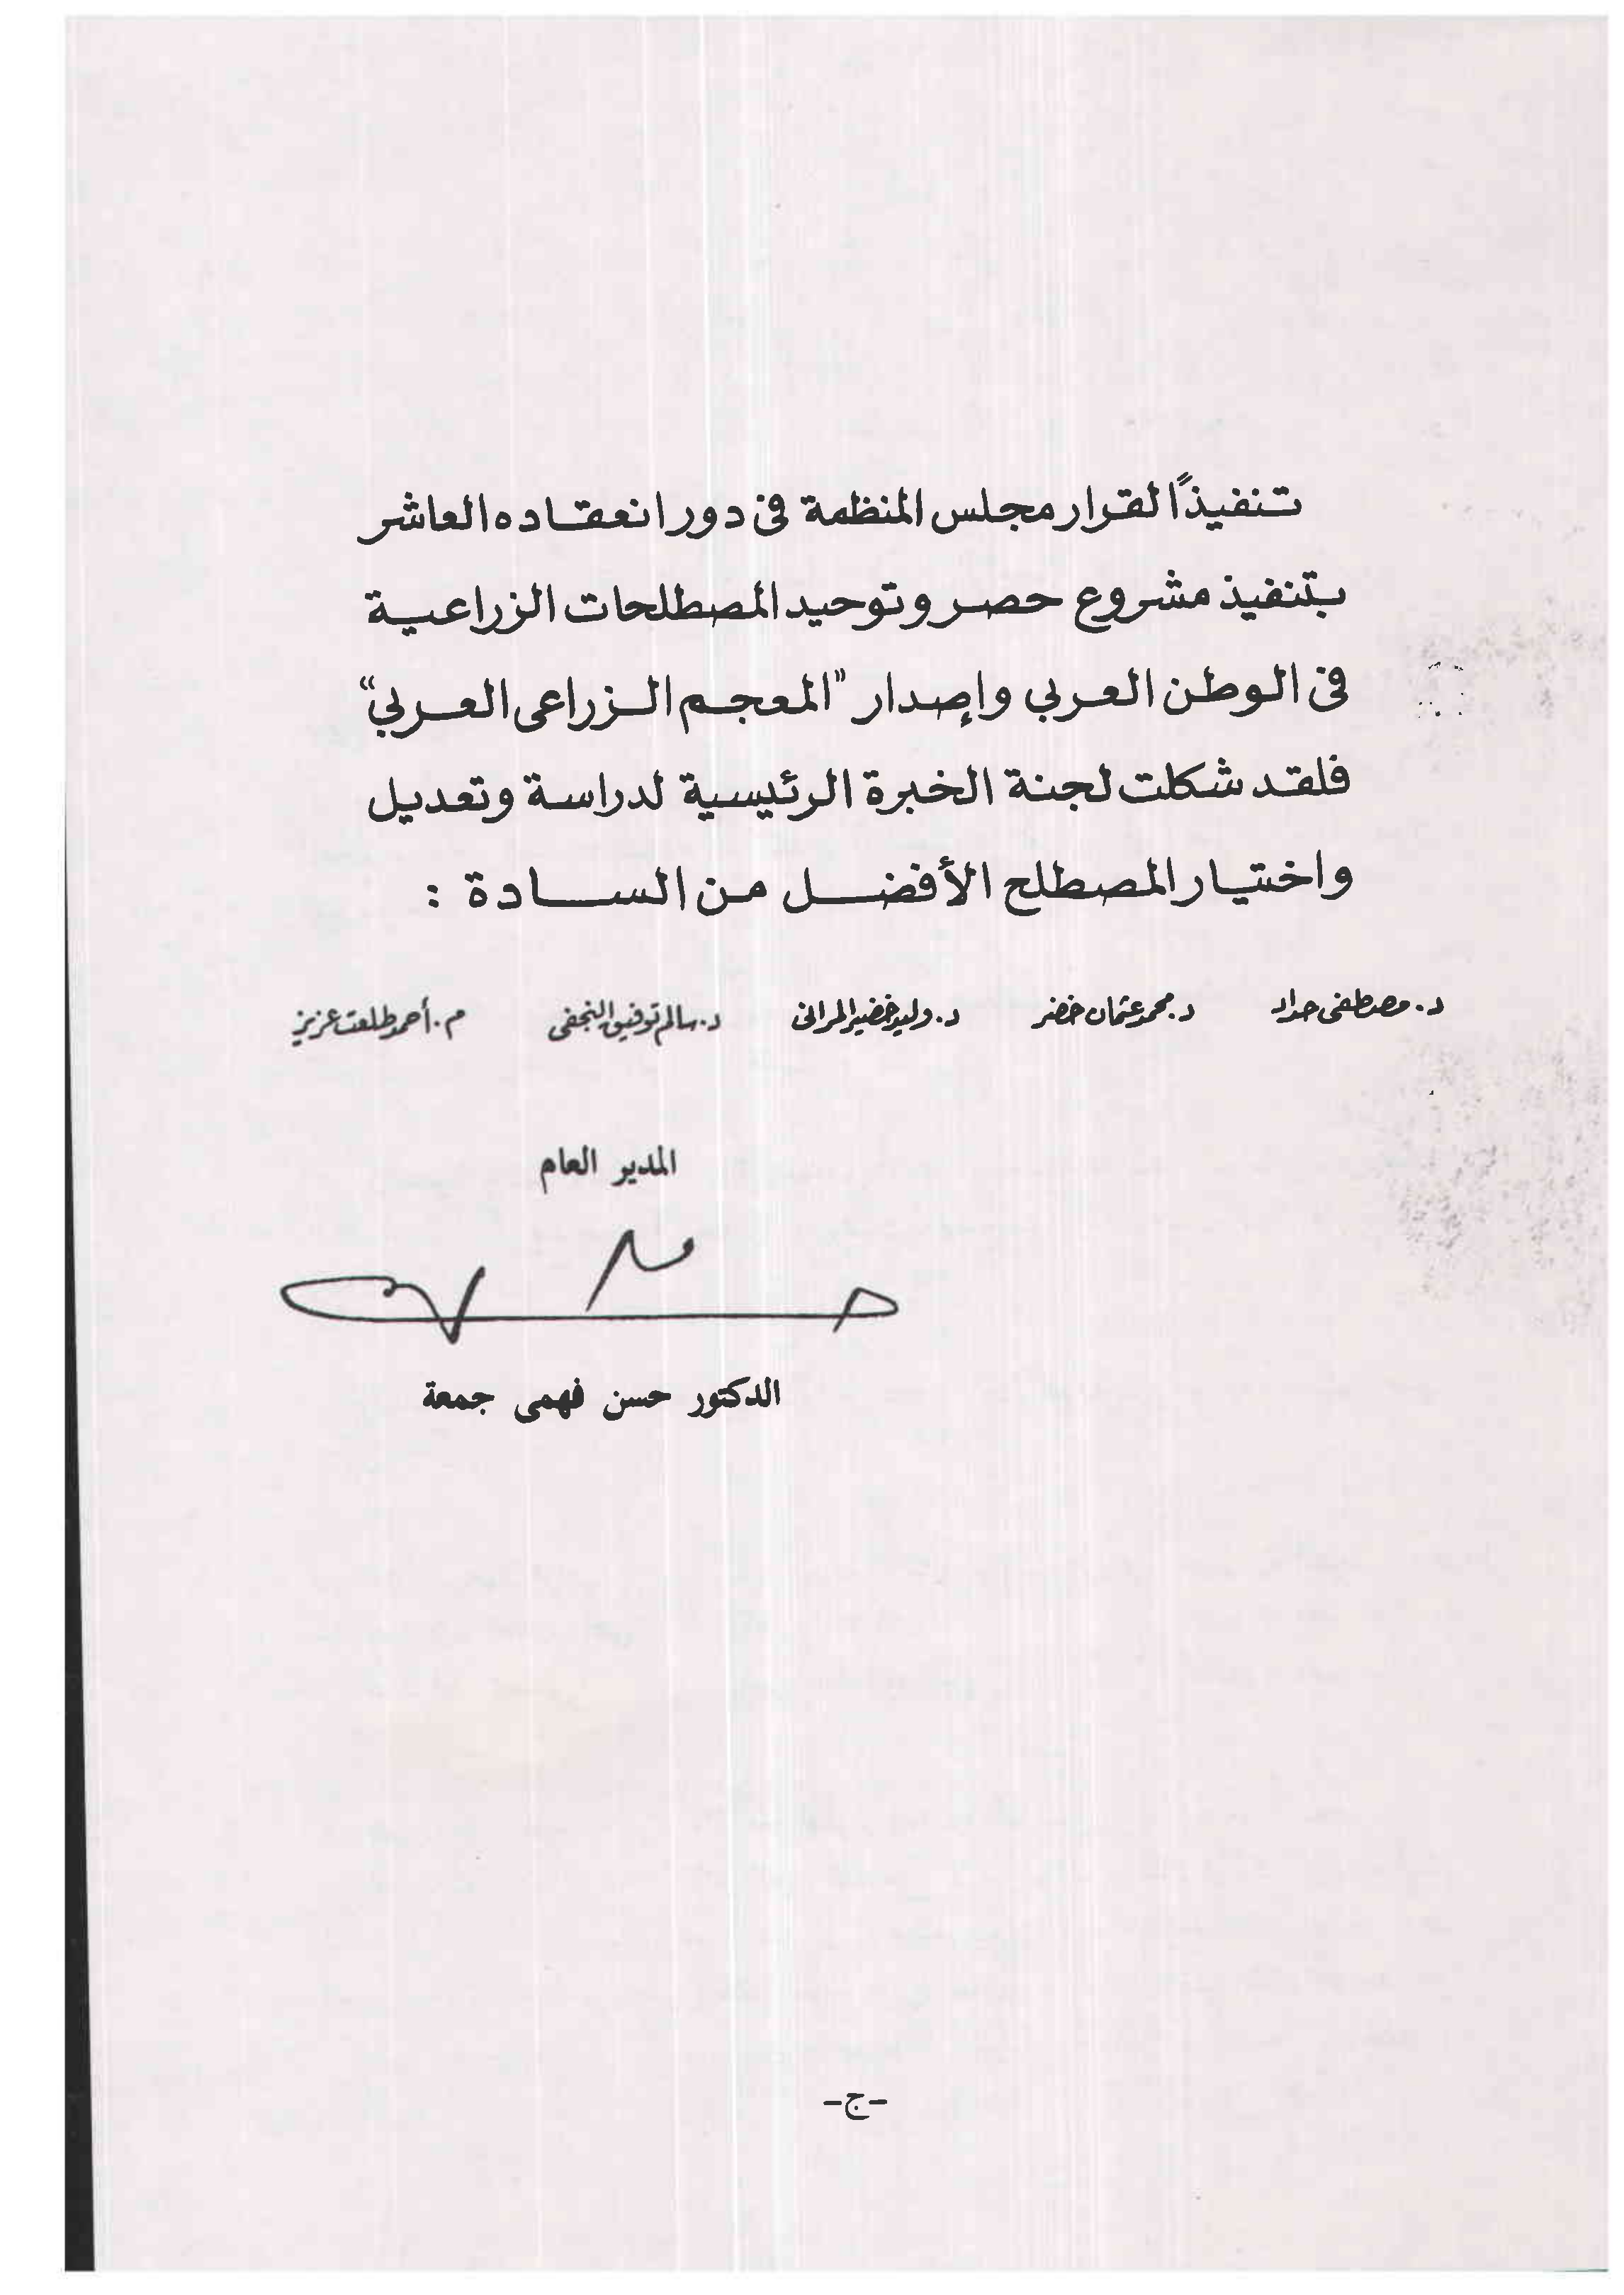 تنفيذًا لقرار مجلس المنظمة فى دور انعقاده العاشر
بتنفيذ مشروع حصر وتوحيد المصطلحات الزراعية
فى الوطن العربي وإصدار "المعجم الزراعى العربي"
فلقد شكلت لجنة الخبرة الرئيسية لدراسة وتعديل
واختيار المصطلح الأفضل من السادة :
د. مصطفى حداد د. محمد عثمان خضر د. وليد خضير المرانى د. سالم توفيق النجفى م. أحمد طلعت عزيز
المدير العام
الدكتور حسن فهمى جمعة
-ج-